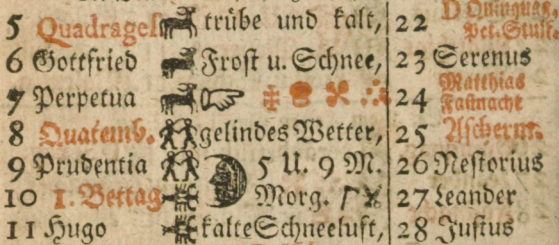 5 Quadrages. trübe und kalt, 22 D Quinquag.
Pet. Stulf.
6 Gottfried Frost u. Schnee, 23 Serenus
7 Perpetua 24 Matthias
Fastnacht
8 Quatemb. gelindes Wetter, 25 Ascherm.
9 Prudentia 5 U. 9 M. 26 Nestorius
10 1. Bettag Morg. 27 Leander
11 Hugo kalte Schneeluft, 28 Justus